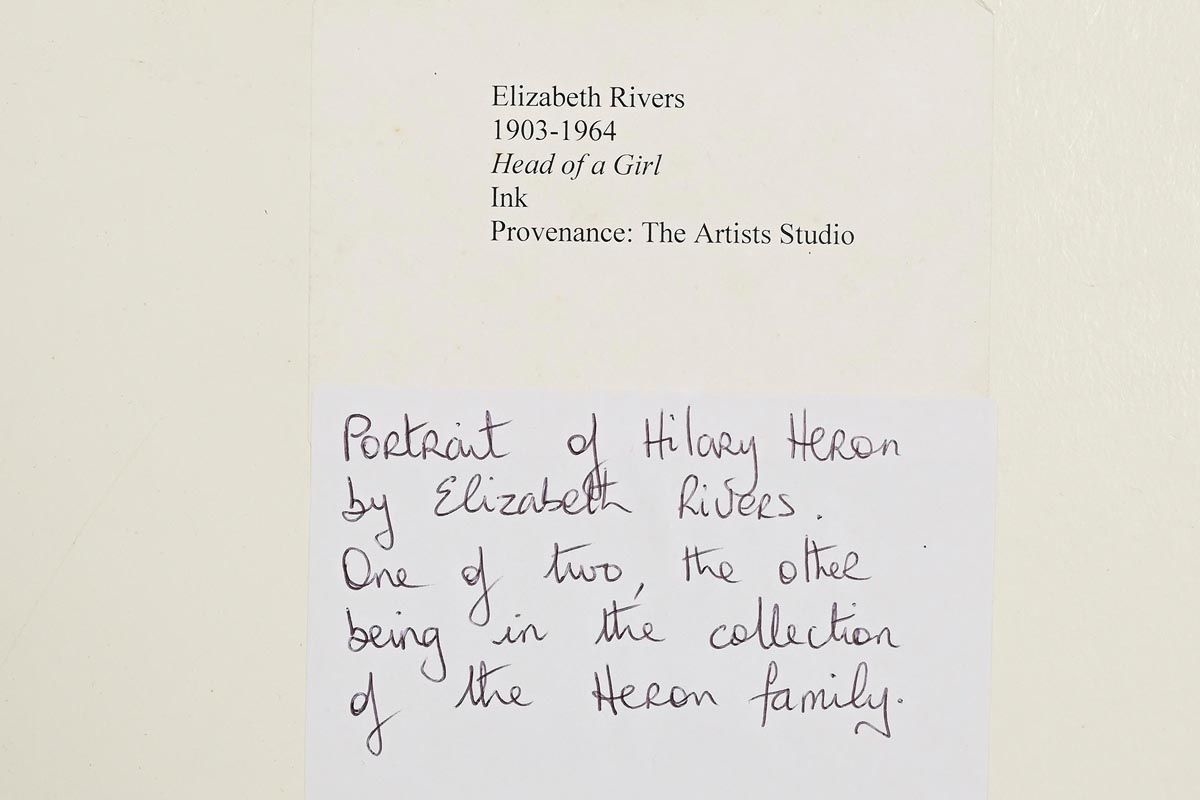 Elizabeth Rivers
1903-1964
Head of a Girl
Ink
Provenance: The Artists Studio
Portrait of Hilary Heron
by Elizabeth Rivers.
One of two, the other
being in the collection
of the Heron family.